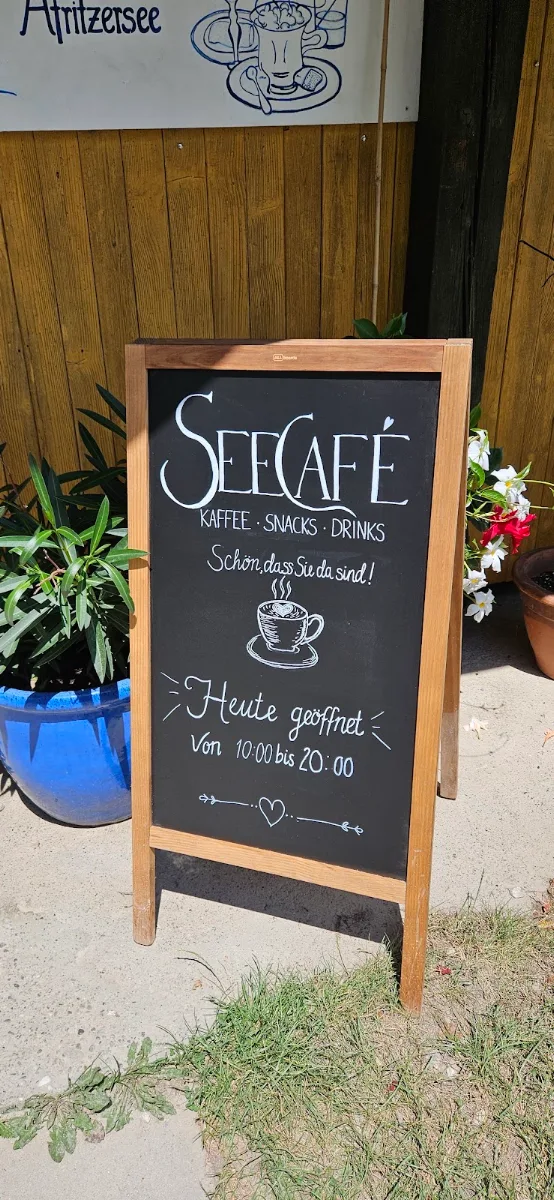 Afritzersee
SEECAFÉ
KAFFEE · SNACKS · DRINKS
Schön, dass Sie da sind!
Heute geöffnet
Von 10:00 bis 20:00